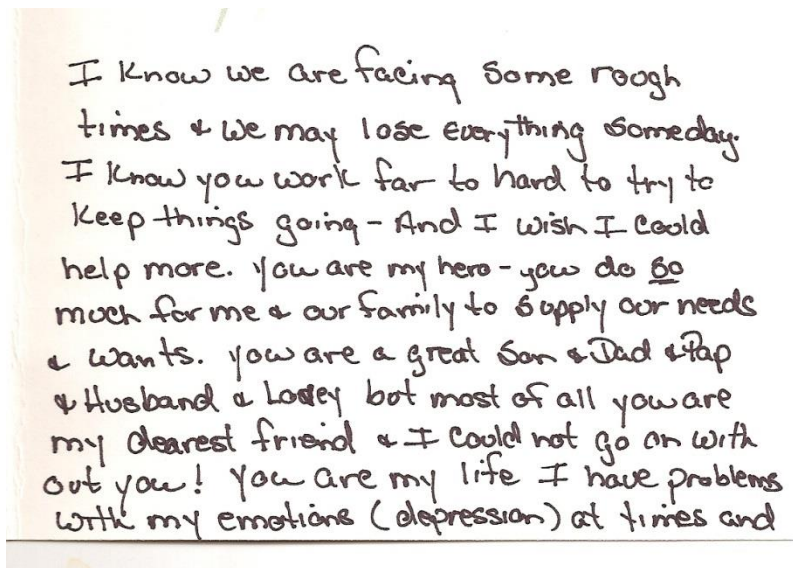 I Know we are facing some rough
times & we may lose everything someday.
I Know you work far to hard to try to
Keep things going - And I wish I could
help more. You are my hero - you do so
much for me & our family to supply our needs
& wants. You are a great Son & Dad & Pap
& Husband & but most of all you are
my dearest friend & I could not go on with
out you! You are my life I have problems
with my emotions (depression) at times and